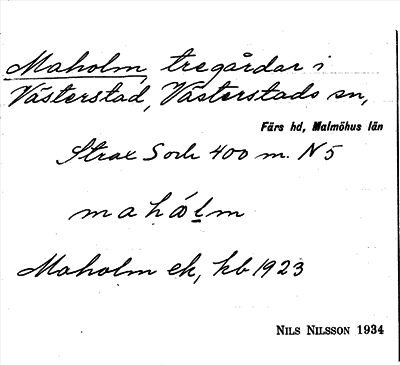 Maholm, tregårdar i
Västerstad, Västerstads sn,
Färs hd, Malmöhus län
Strax S och 400 m. N 5
mahålm
Maholm ek, kb 1923
NILS NILSSON 1934